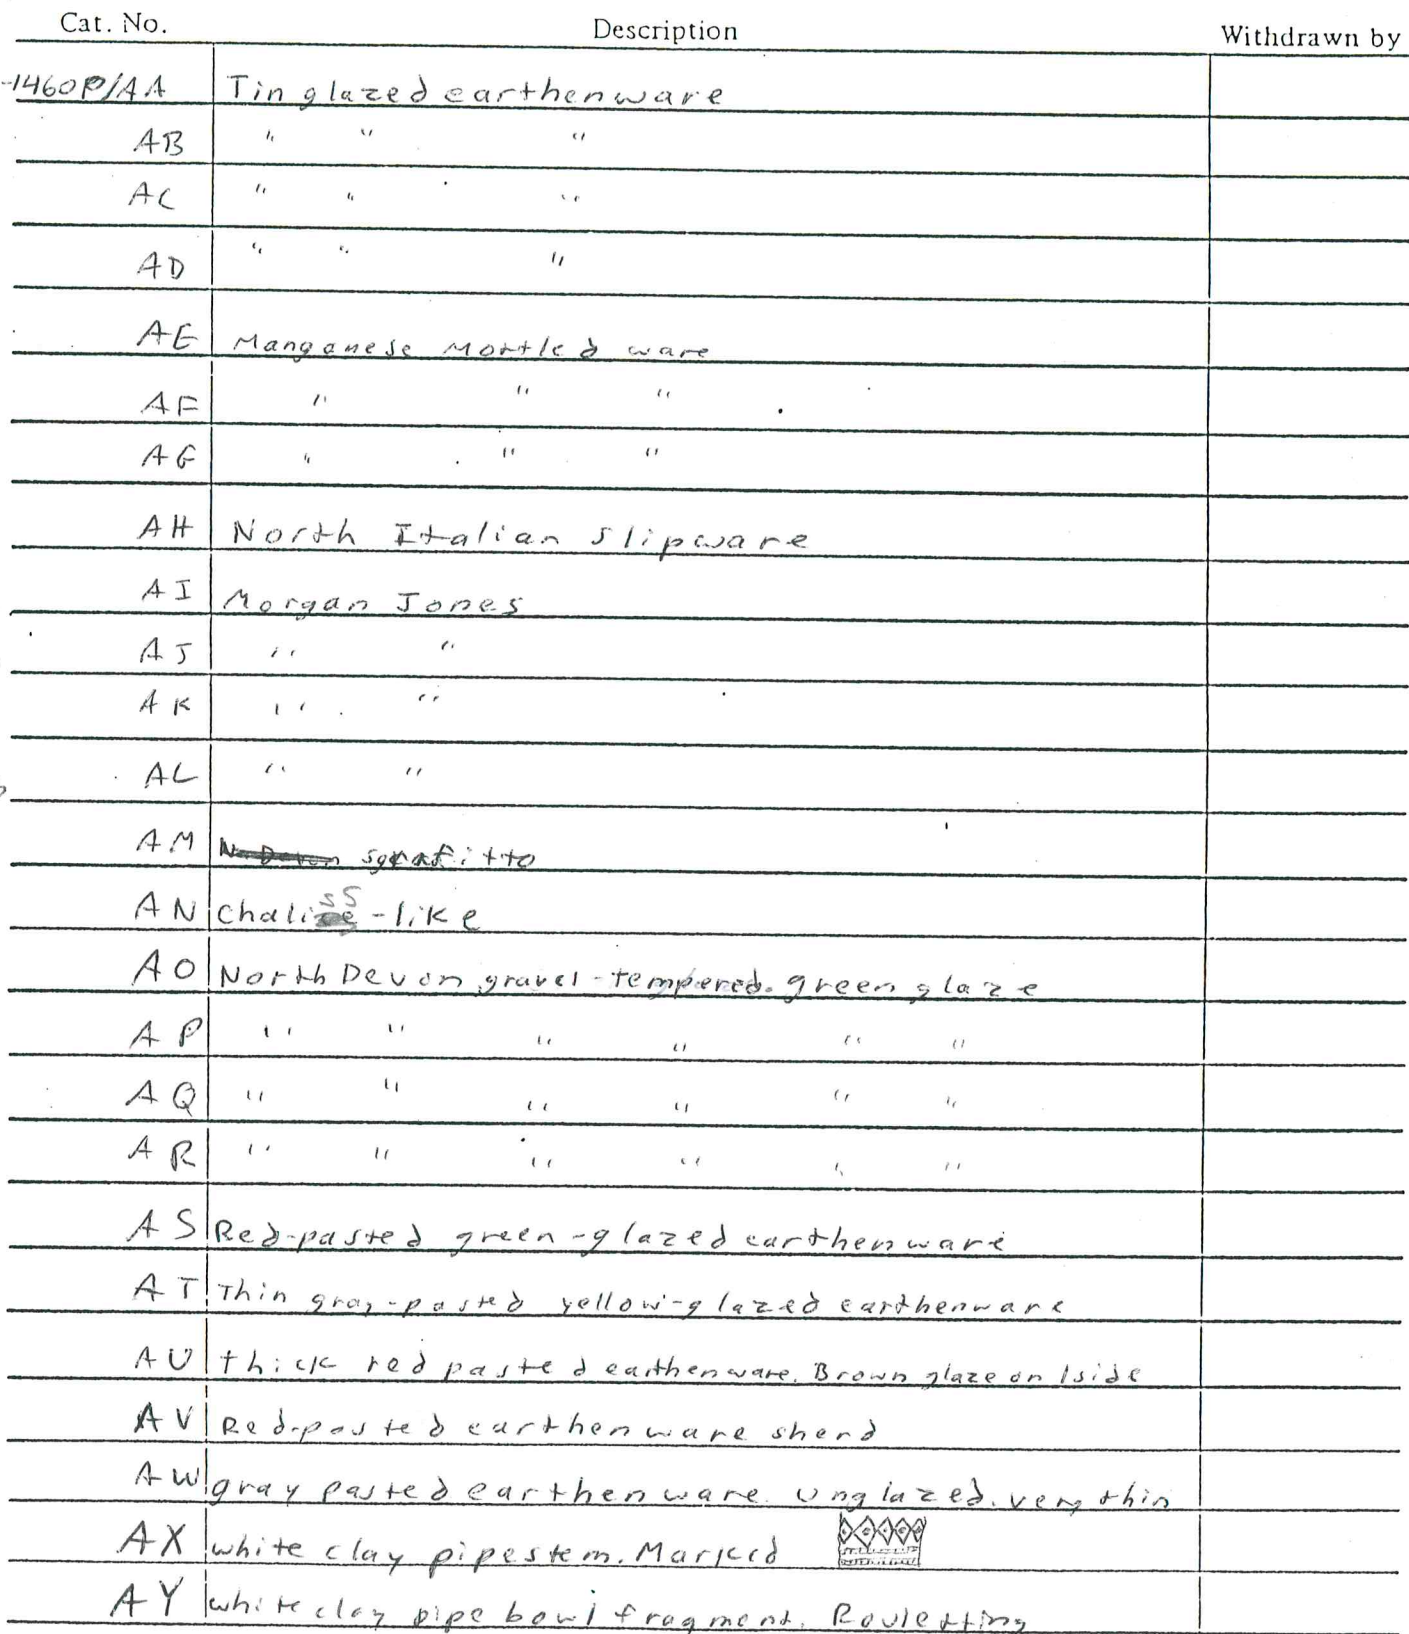 Cat. No. Description Withdrawn by
-1460P/AA Tin glazed earthenware
AB " " "
AC " " "
AD " " "
AE Manganese Mottled ware
AF " " "
AG " " "
AH North Italian slipware
AI Morgan Jones
AJ " "
AK " "
AL " "
AM sgrafitto
AN Chaliss-like
AO North Devon gravel-tempered. green glaze
AP " " " " " "
AQ " " " " " "
AR " " " " " "
AS Red-pasted green-glazed earthenware
AT Thin gray-pasted yellow-glazed earthenware
AU thick red pasted earthenware. Brown glaze on 1 side
AV Red-pasted earthenware sherd
AW gray pasted earthenware. Unglazed. very thin
AX white clay pipestem. Marked
AY white clay pipe bowl fragment. Rouletting